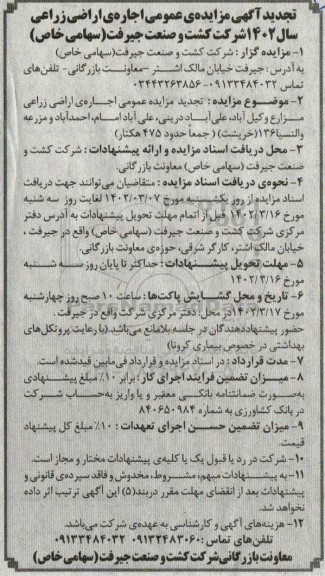 تجدید آگهی مزایده‌ی عمومی اجاره‌ی اراضی زراعی
سال ۱۴۰۲ شرکت کشت و صنعت جیرفت (سهامی خاص)
۱- مزایده گزار : شرکت کشت و صنعت جیرفت (سهامی خاص)
به آدرس : جیرفت خیابان مالک اشتر - معاونت بازرگانی - تلفن‌های
تماس ۰۹۱۳۳۴۸۴۰۳۲ - ۰۳۴۴۳۲۶۳۸۵۶
۲- موضوع مزایده : تجدید مزایده عمومی اجاره‌ی اراضی زراعی
مزارع وکیل آباد، علی‌آباد درینی، علی آباد امام، احمدآباد و مزرعه
والنسیا ۱۳۶ (خرپشت) ( جمعاً حدود ۴۷۵ هکتار)
۳- محل دریافت اسناد مزایده و ارائه پیشنهادات : شرکت کشت و
صنعت جیرفت (سهامی خاص) معاونت بازرگانی.
۴- نحوه‌ی دریافت اسناد مزایده : متقاضیان می‌توانند جهت دریافت
اسناد مزایده از روز یکشنبه مورخ ۱۴۰۲/۰۳/۰۷ لغایت روز سه شنبه
مورخ ۱۴۰۲/۳/۱۶ قبل از اتمام مهلت تحویل پیشنهادات به آدرس دفتر
مرکزی شرکت کشت و صنعت جیرفت (سهامی خاص) واقع در جیرفت ،
خیابان مالک اشتر، کارگر شرقی، حوزه‌ی معاونت بازرگانی.
۵- مهلت تحویل پیشنهادات : حداکثر تا پایان روز سه شنبه
مورخ ۱۴۰۲/۳/۱۶
۶- تاریخ و محل گشایش پاکت‌ها : ساعت ۱۰ صبح روز چهارشنبه
مورخ ۱۴۰۲/۳/۱۷ در محل: دفتر مرکزی شرکت واقع در جیرفت.
حضور پیشنهاددهندگان در جلسه بلامانع می‌باشد. (با رعایت پروتکل‌های
بهداشتی در خصوص بیماری کرونا)
۷- مدت قرارداد : در اسناد مزایده و قرارداد فی‌مابین قید شده است.
۸- میزان تضمین فرایند اجرای کار : برابر ۱۰٪ مبلغ پیشنهادی
به‌صورت ضمانتنامه بانکی معتبر و یا واریز به‌حساب شرکت
در بانک کشاورزی به شماره ۸۴۰۶۵۰۹۸۴
۹- میزان تضمین حسن اجرای تعهدات : ۱۰٪ مبلغ کل پیشنهاد
قیمت.
۱۰- شرکت در رد یا قبول یک یا کلیه‌ی پیشنهادات مختار و مجاز است.
۱۱- به پیشنهادات مبهم، مشروط، مخدوش و فاقد سپرده‌ی قانونی و
پیشنهادات بعد از انقضای مهلت مقرر در بند (۵) این آگهی ترتیب اثر داده
نخواهد شد.
۱۲- هزینه‌های آگهی و کارشناسی به عهده‌ی شرکت می‌باشد.
تلفن‌های تماس: ۰۹۱۳۲۴۸۳۰۶۰ - ۰۹۱۳۳۴۸۴۰۳۲
معاونت بازرگانی شرکت کشت و صنعت جیرفت (سهامی خاص)